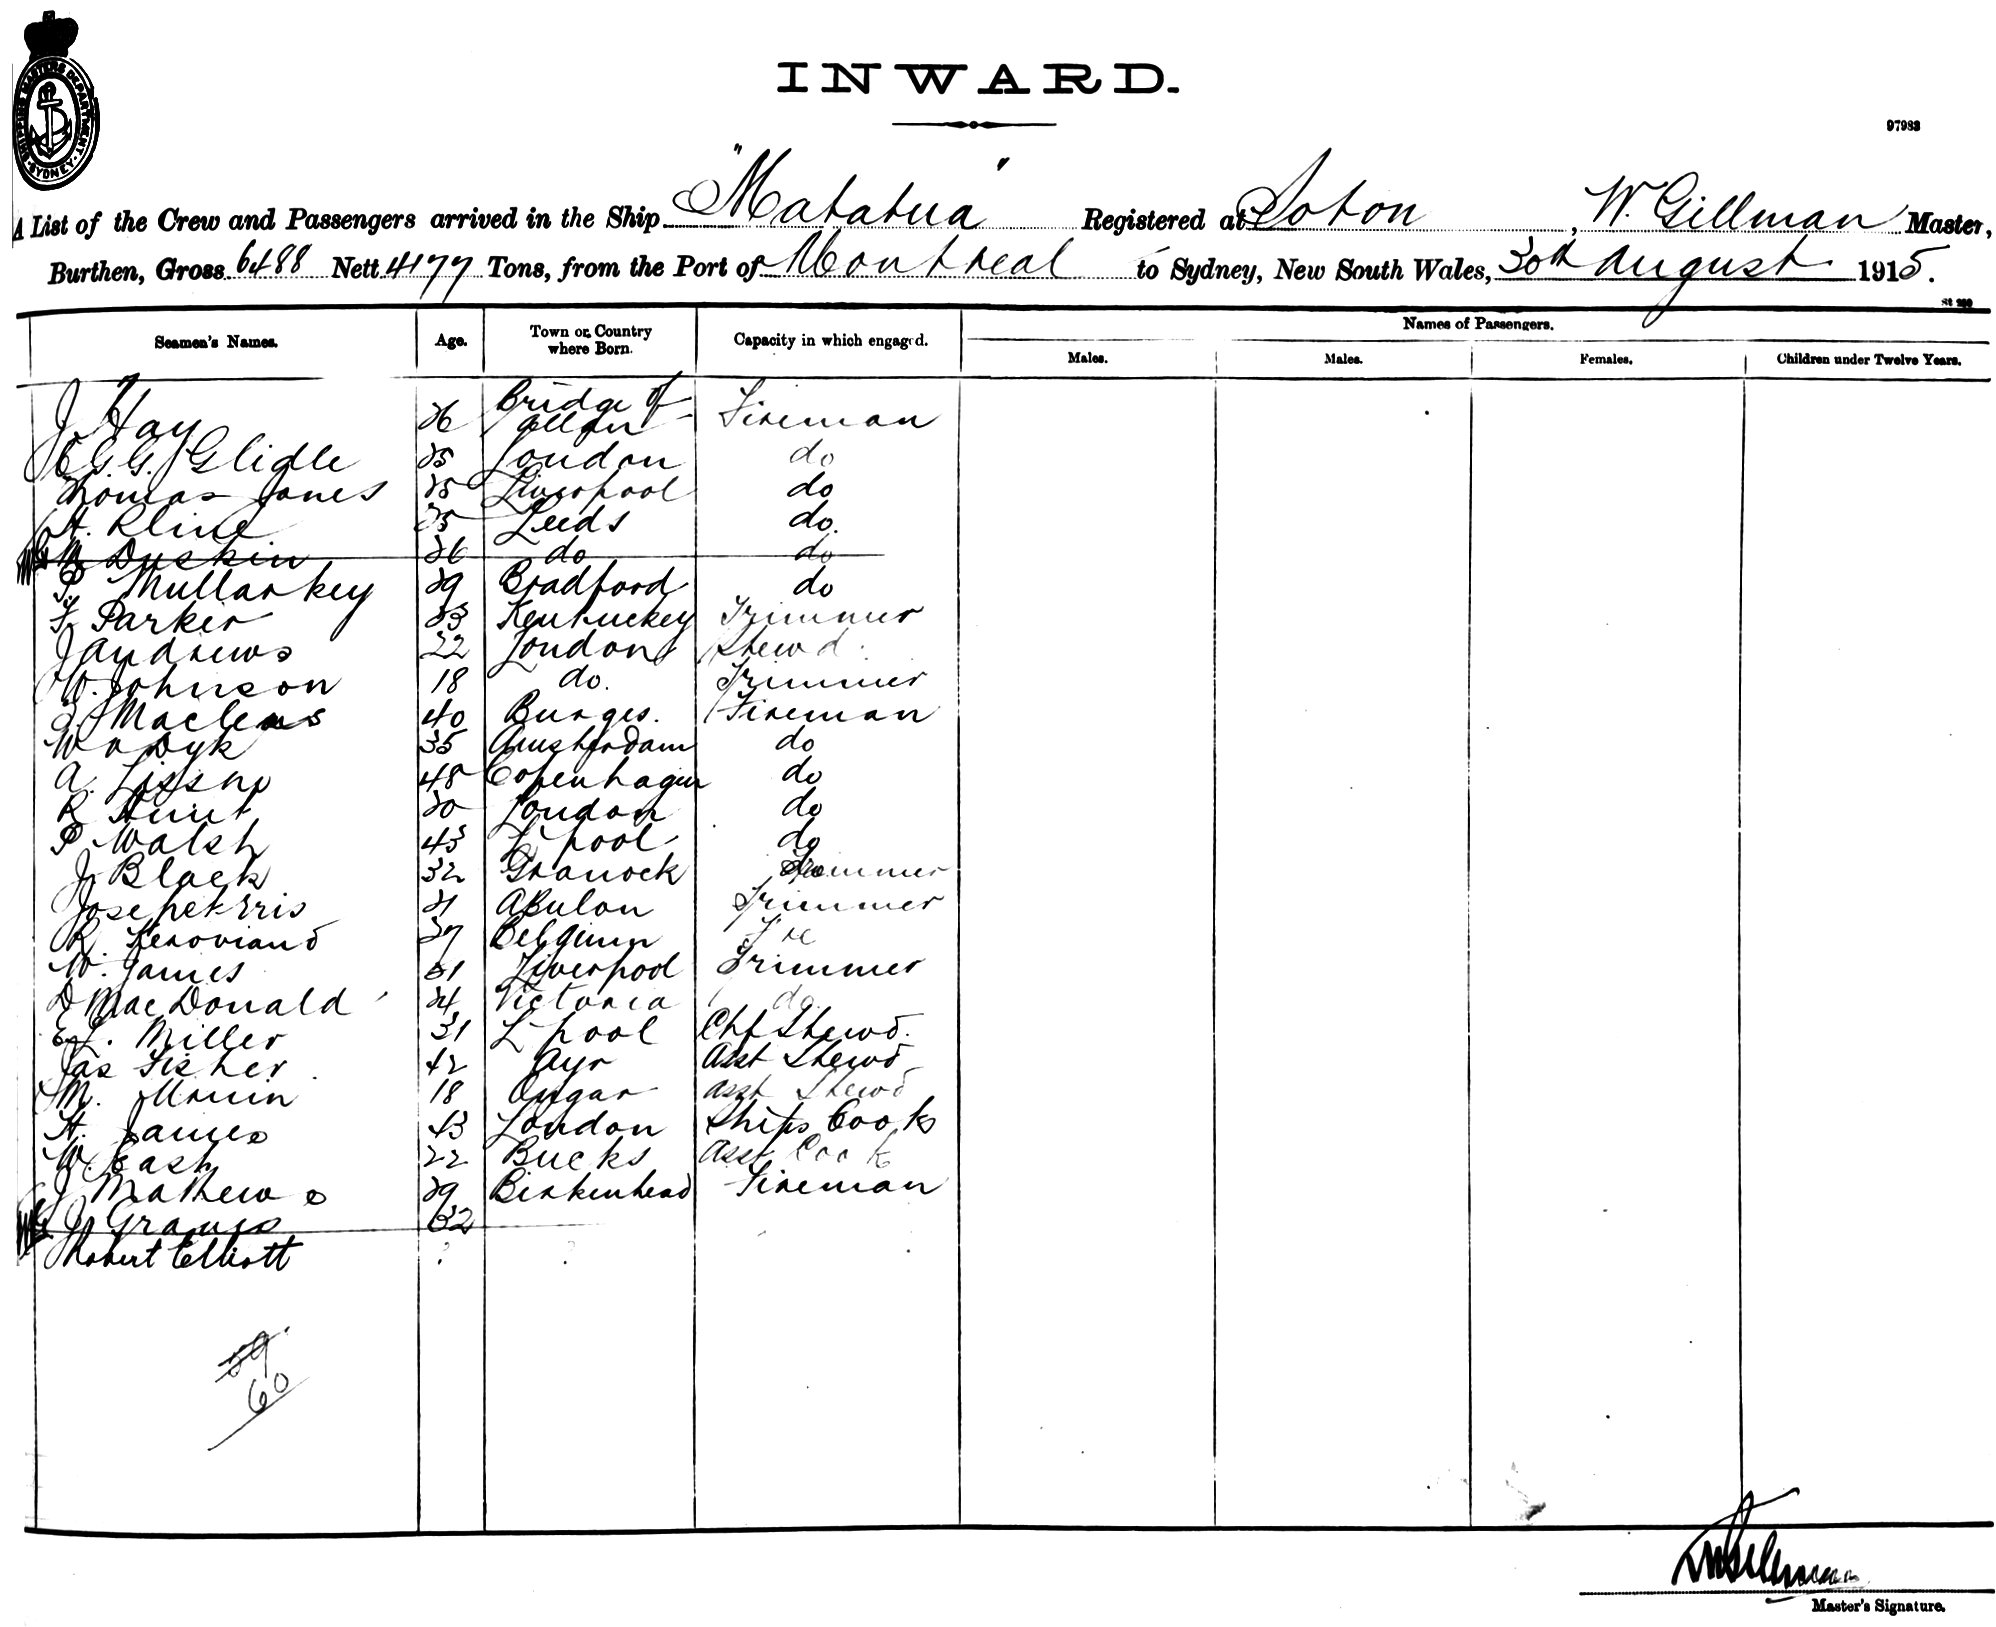 SHIPPING MASTERS DEPARTMENT. SYDNEY.
INWARD.
97983
A List of the Crew and Passengers arrived in the Ship "Matatua" Registered at Soton, W. Gillman Master,
Burthen, Gross 6488 Nett 4177 Tons, from the Port of Montreal to Sydney, New South Wales, 30th August 1915.
St 290
Names of Passengers.
Seamen's Names. Age. Town or Country where Born. Capacity in which engaged. Males. Males. Females. Children under Twelve Years.
J Hay 26 Bridge of Allan Fireman
G. G. Glidle 25 London do
Thomas Jones 25 Liverpool do
H. Kline 25 Leeds do.
M Duskin 26 do do
P. Mullarkey 29 Bradford do
F Parker 23 Kentuckey Trimmer
J Andrews 22 London Stewd.
W. Johnson 18 do. Trimmer
Maclens 40 Burges. Fireman
W v Dyk 35 Amsterdam do
A. Lissno 48 Copenhagen do
R Hunt 20 London do
P Walsh 43 L'pool do
J. Black 32 Granock Trimmer
Joseph 21 Trimmer
R. 27 Belgium Fre
W. James 21 Liverpool Trimmer
D MacDonald 24 Victoria do.
E. Miller 31 L'pool Chf Stewd.
Jas Fisher 42 Ayr Asst Stewd
M. 18 Ongar Asst Stewd
H. James 43 London Ships Cook
W. Cash 22 Bucks Asst Cook
J Mathews 29 Birkenhead Fireman
J. Graves 32
Robert Elliott ? ?
59
60
Master's Signature.